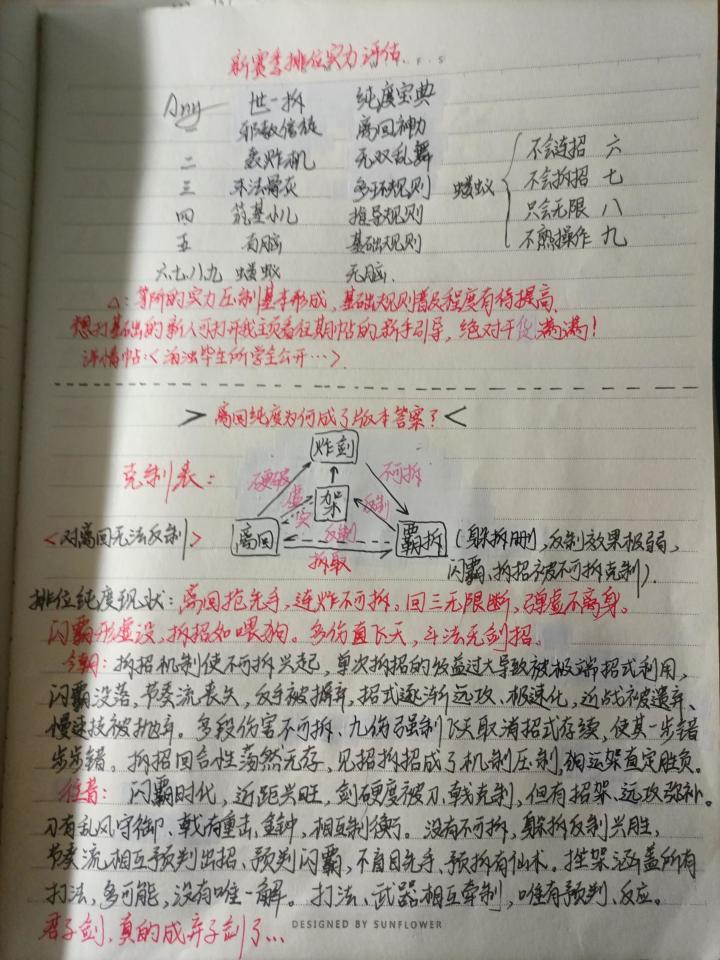 新赛季排位实力评估
Any 世一拆 纯度宝典
一 邪教信徒 离回神力
二 轰炸机 无双乱舞
三 末法骨灰 多环规则
四 筑基小儿 推导规则
五 有脑 基础规则
六七八九 蝼蚁 无脑.
蝼蚁
不会连招 六
不会拆招 七
只会无限 八
不熟操作 九
△:等阶的实力压制基本形成,基础规则普及程度有待提高.
想打基础的新人可打开我主页看往期帖的新手引导,绝对干货满满!
详情帖:<泊浊毕生所学全公开…>.
>离回纯度为何成了版本答案?<
克制表:
炸剑
硬破 不可拆
虚实 架 反制
<对离回无法反制> 离回 反制 霸拆 (躲拆删,反制效果极弱,
拆取 闪霸、拆招被不可拆克制).
排位纯度现状:离回抢先手,连炸不可拆。回三无限断,弹虚不离身。
闪霸形虚设,拆招如喂狗。多伤直飞天,斗法无剑招。
今朝:拆招机制使不可拆兴起,单次拆招的收益过大导致被极端招式利用,
闪霸没落,节奏流丧失,反手被摒弃,招式逐渐远攻、极速化,近战被遗弃、
慢速技被抛弃。多段伤害不可拆、九伤强制飞天取消招式存续,使其一步错
步步错。拆招回合性荡然无存,见招拆招成了机制压制,狗运架直定胜负。
往昔:闪霸时代,近距兴旺,剑硬度被刀、戟克制,但有招架、远攻弥补。
刀有乱风守御、戟有重击、金钟,相互制衡。没有不可拆,躲拆反制兴胜,
节奏流相互预判出招、预判闪霸,不盲目先手、预拆有仙术。挫架涵盖所有
打法,多可能,没有唯一解。打法、武器相互牵制,唯有预判、反应。
君子剑,真的成弃子剑了...
DESIGNED BY SUNFLOWER